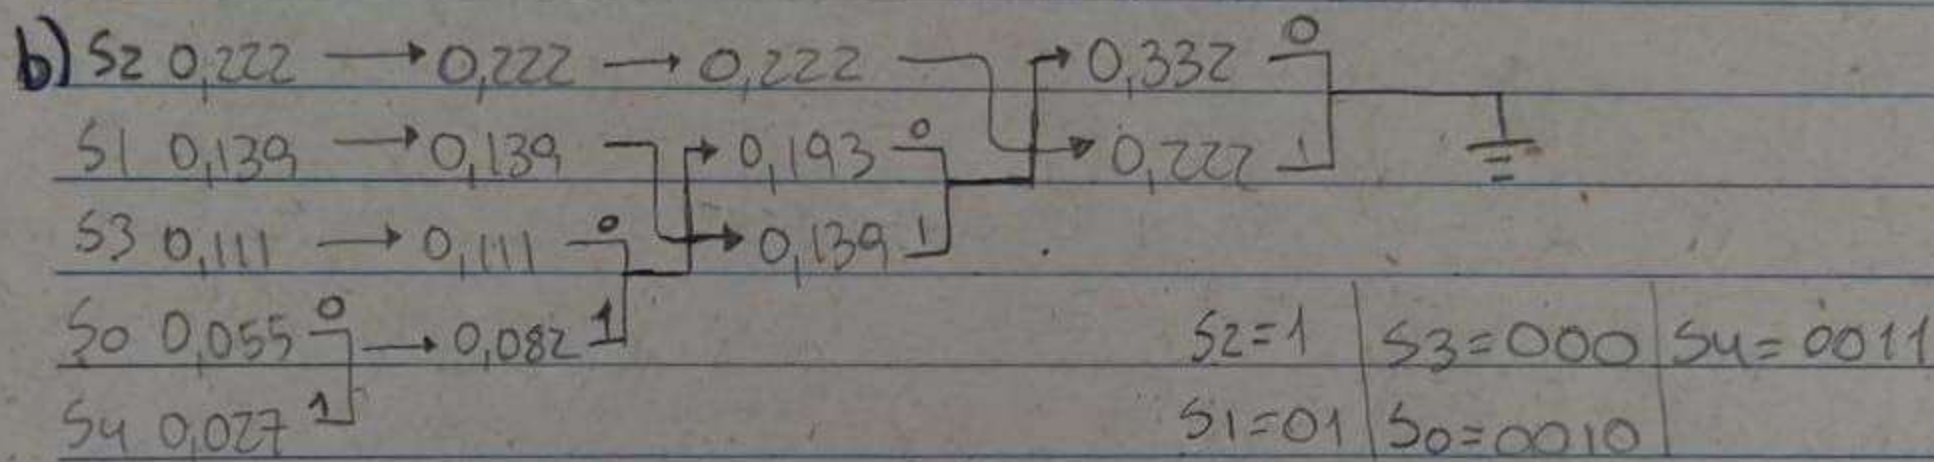 b) S2 0,222 → 0,222 → 0,222 → 0,332 0
S1 0,139 → 0,139 → 0,193 0 → 0,222 1
S3 0,111 → 0,111 0 → 0,139 1
S0 0,055 0 → 0,082 1 S2=1 | S3=000 | S4=0011
S4 0,027 1 S1=01 | S0=0010